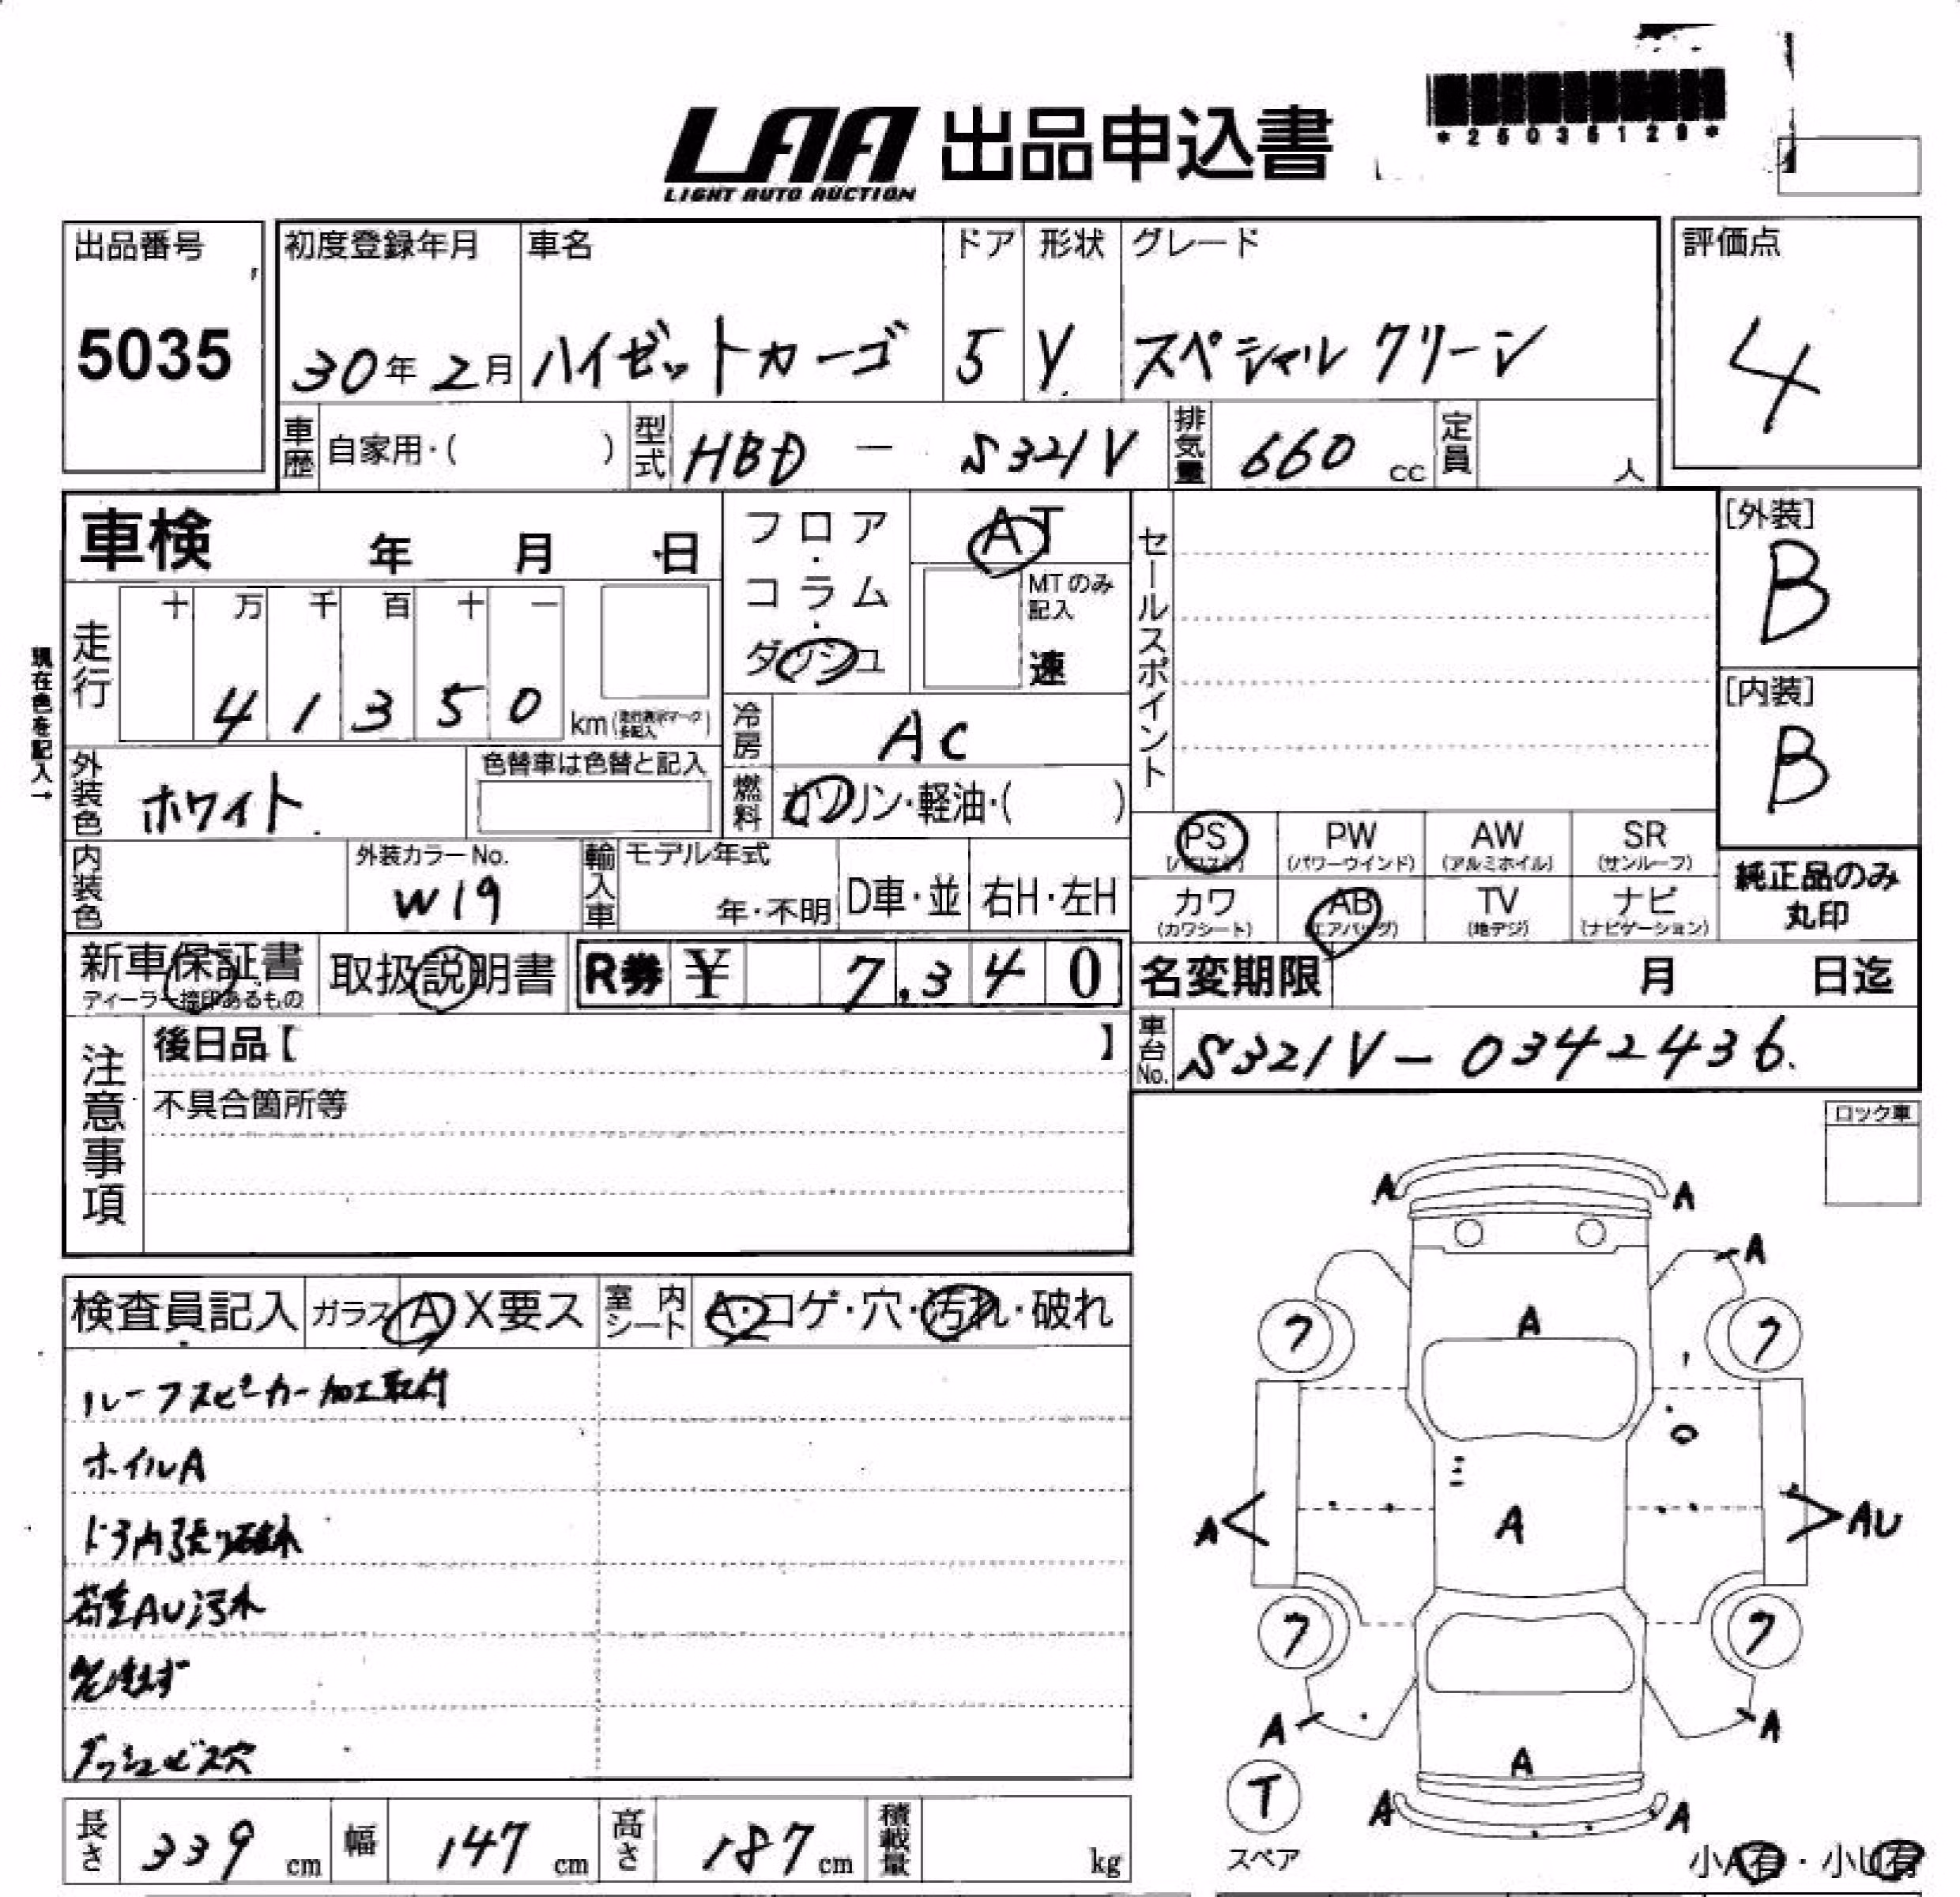 *25035129*
LAA 出品申込書
LIGHT AUTO AUCTION
出品番号 初度登録年月 車名 ドア 形状 グレード 評価点
5035 30年2月 ハイゼットカーゴ 5 V スペシャル クリーン 4
車歴 自家用・( ) 型式 HBD - S321V 排気量 660 cc 定員 人
車検 年 月 日 フロア・コラム・ダッシュ AT セールスポイント [外装]
B
MTのみ記入
速
現在色を記入→
走行 十 万 千 百 十 一
4 1 3 5 0 km
[内装]
B
冷房 AC
外装色 ホワイト 色替車は色替と記入 燃料 ガソリン・軽油・( )
PS PW AW SR
(パワステ) (パワーウインド) (アルミホイル) (サンルーフ)
内装色 外装カラーNo. W19 輸入車 モデル年式 年・不明 D車・並 右H・左H
カワ AB TV ナビ 純正品のみ
(カワシート) (エアバッグ) (地デジ) (ナビゲーション) 丸印
新車保証書 取扱説明書 R券 ¥ 7,340 名変期限 月 日迄
ディーラー捺印あるもの
注意事項 後日品【 】 車台No. S321V-0342436.
不具合箇所等
ロック車
検査員記入 ガラス A X要ス 室内シート A・コゲ・穴・汚れ・破れ
ルーフスピーカー加工取付
ホイルA
ドア内張り破れ
荷室AU汚れ
ダッシュビス穴
A A
A
A
7 7
A A AU
7 7
A A
A
T A A
スペア
小A有・小U有
長さ 339 cm 幅 147 cm 高さ 187 cm 積載量 kg